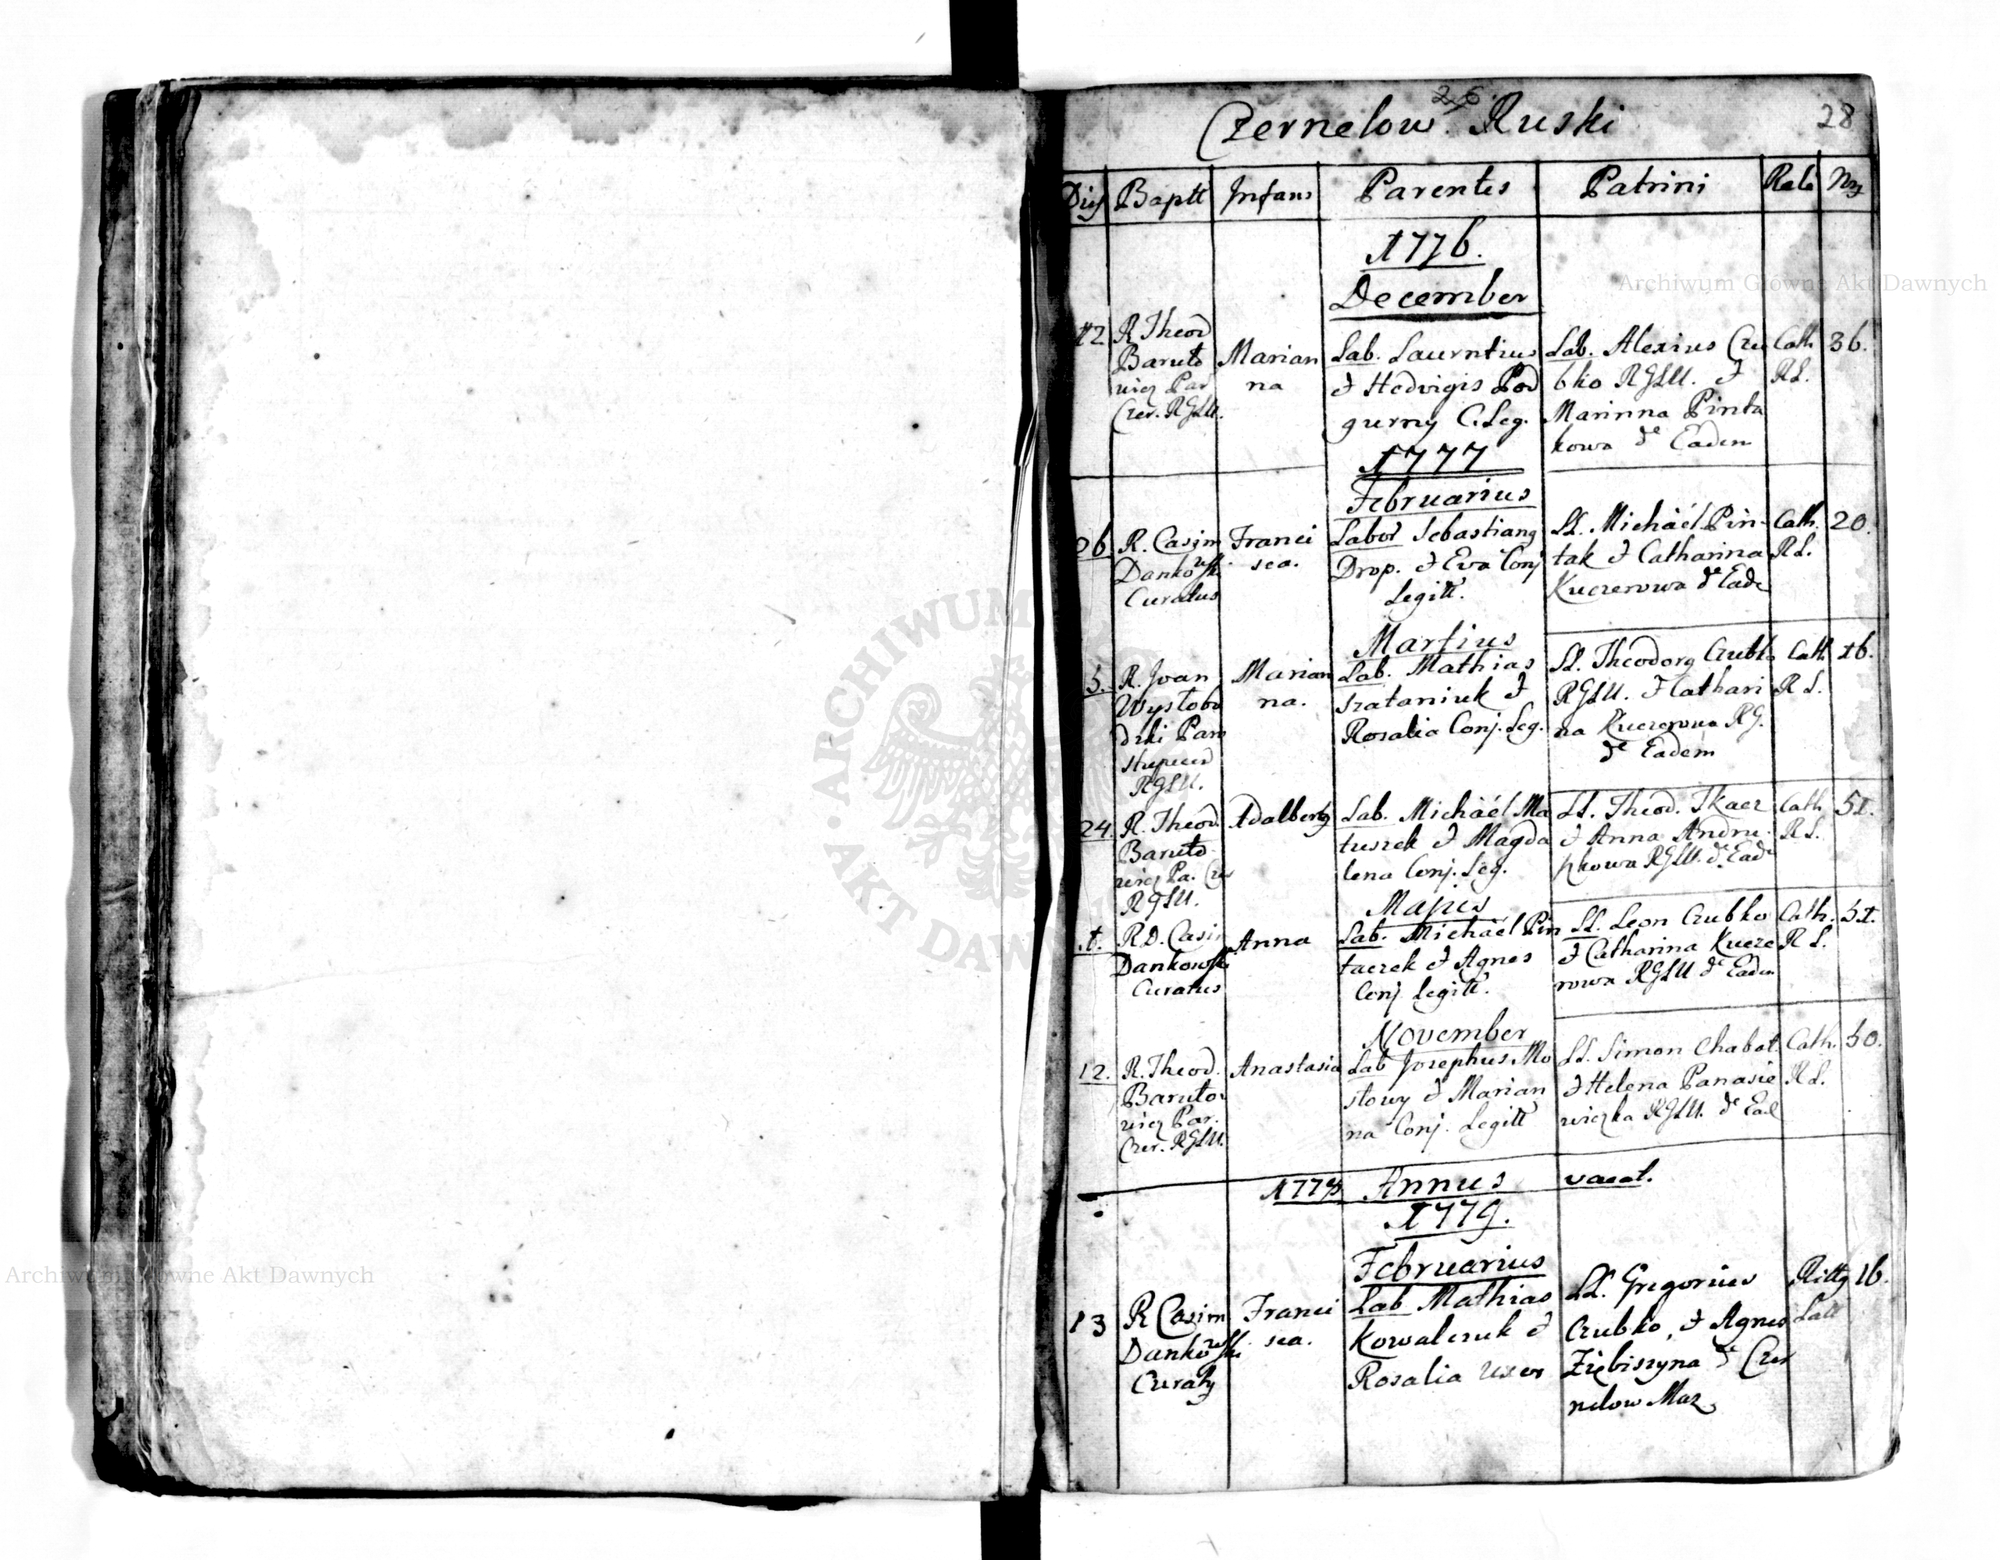 26.
28
Czernelow Ruski
Dies Baptt Infans Parentes Patrini Relo Nrs
1776.
December
12 R Theod Baruto wicz Par Czer. RGLU.
Marian na
Lab. Laurntius & Hedvigis Pod gurny C. Leg.
Lab. Alexius Czu bko RGLU. & Marinna Pinta kowa de Eadem
Cath RL. 36.
1777
Februarius
06 R. Casim Dankowski Curatus
Franci sca.
Labor Sebastiang Drop. & Eva Conj Legitt.
LL. Michaël Pin- tak & Catharina Kuczerowa de Eade
Cath. RL. 20.
Martius
5. R. Joan Wystobo dzki Par
RGLU.
Marian na.
Lab. Mathias Szataniuk & Rosalia Conj. Leg.
LL. Theodorg Czubko RGLU. & Cathari na Kuczerowa RG. de Eadem
Cath R L. 16.
24. R. Theod. Baruto wicz Pa. Czer RGLU.
Adalbertg
Lab. Michaël Ma tuszek & Magda lena Conj. Leg.
LL. Theod. Tkacz & Anna Andru- hkowa RGLU. de Eade
Cath RL. 51.
Majus
1. R.D. Casi Dankowski Curatus
Anna
Lab. Michaël Pin taczek & Agnes Conj Legitt.
LL. Leon Czubko & Catharina Kucze rowa RGLU de Eadem
Cath. R L. 51.
November
12. R. Theod. Baruto wicz Par. Czer. RGLU.
Anastasia
Lab Josephus Mo stowy & Marian na Conj. Legitt
LL. Simon Chabat & Helena Panasie wiczka RGLU. de Ead
Cath. RL. 50.
1778 Annus vacat.
1779.
Februarius
13 R Casim Dankowski Curatg
Franci sca.
Lab Mathias Kowalczuk & Rosalia uxor
LL. Gregorius Czubko, & Agnes Ziębiszyna de Czer nelow Maz
Rittg Latt 16.
Archiwum Główne Akt Dawnych
Archiwum Główne Akt Dawnych
ARCHIWUM
AKT DAWN